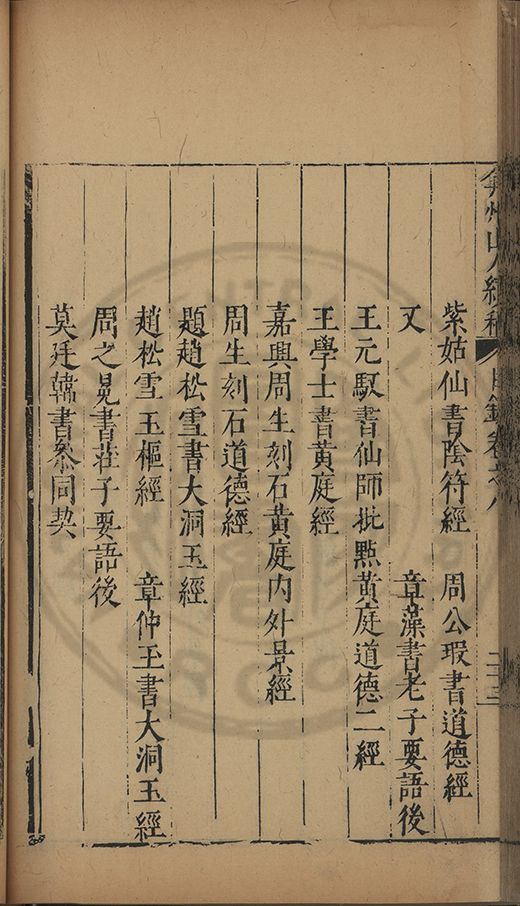 弇州山人續稿 目錄卷之八 二十三
紫姑仙書陰符經 周公瑕書道德經
又 章藻書老子要語後
王元馭書仙師批點黃庭道德二經
王學士書黃庭經
嘉興周生刻石黃庭內外景經
周生刻石道德經
題趙松雪書大洞玉經
趙松雪玉樞經 章仲玉書大洞玉經
周之冕書莊子要語後
莫廷韓書叅同契